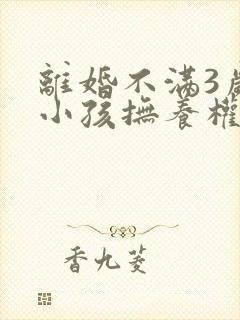 離婚不满3歲
小孩撫養權
香九菱